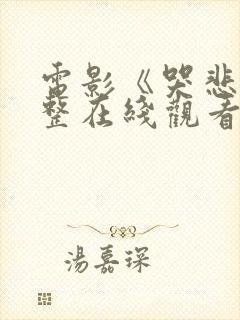 電影《哭悲
整在綫觀看
湯嘉琛